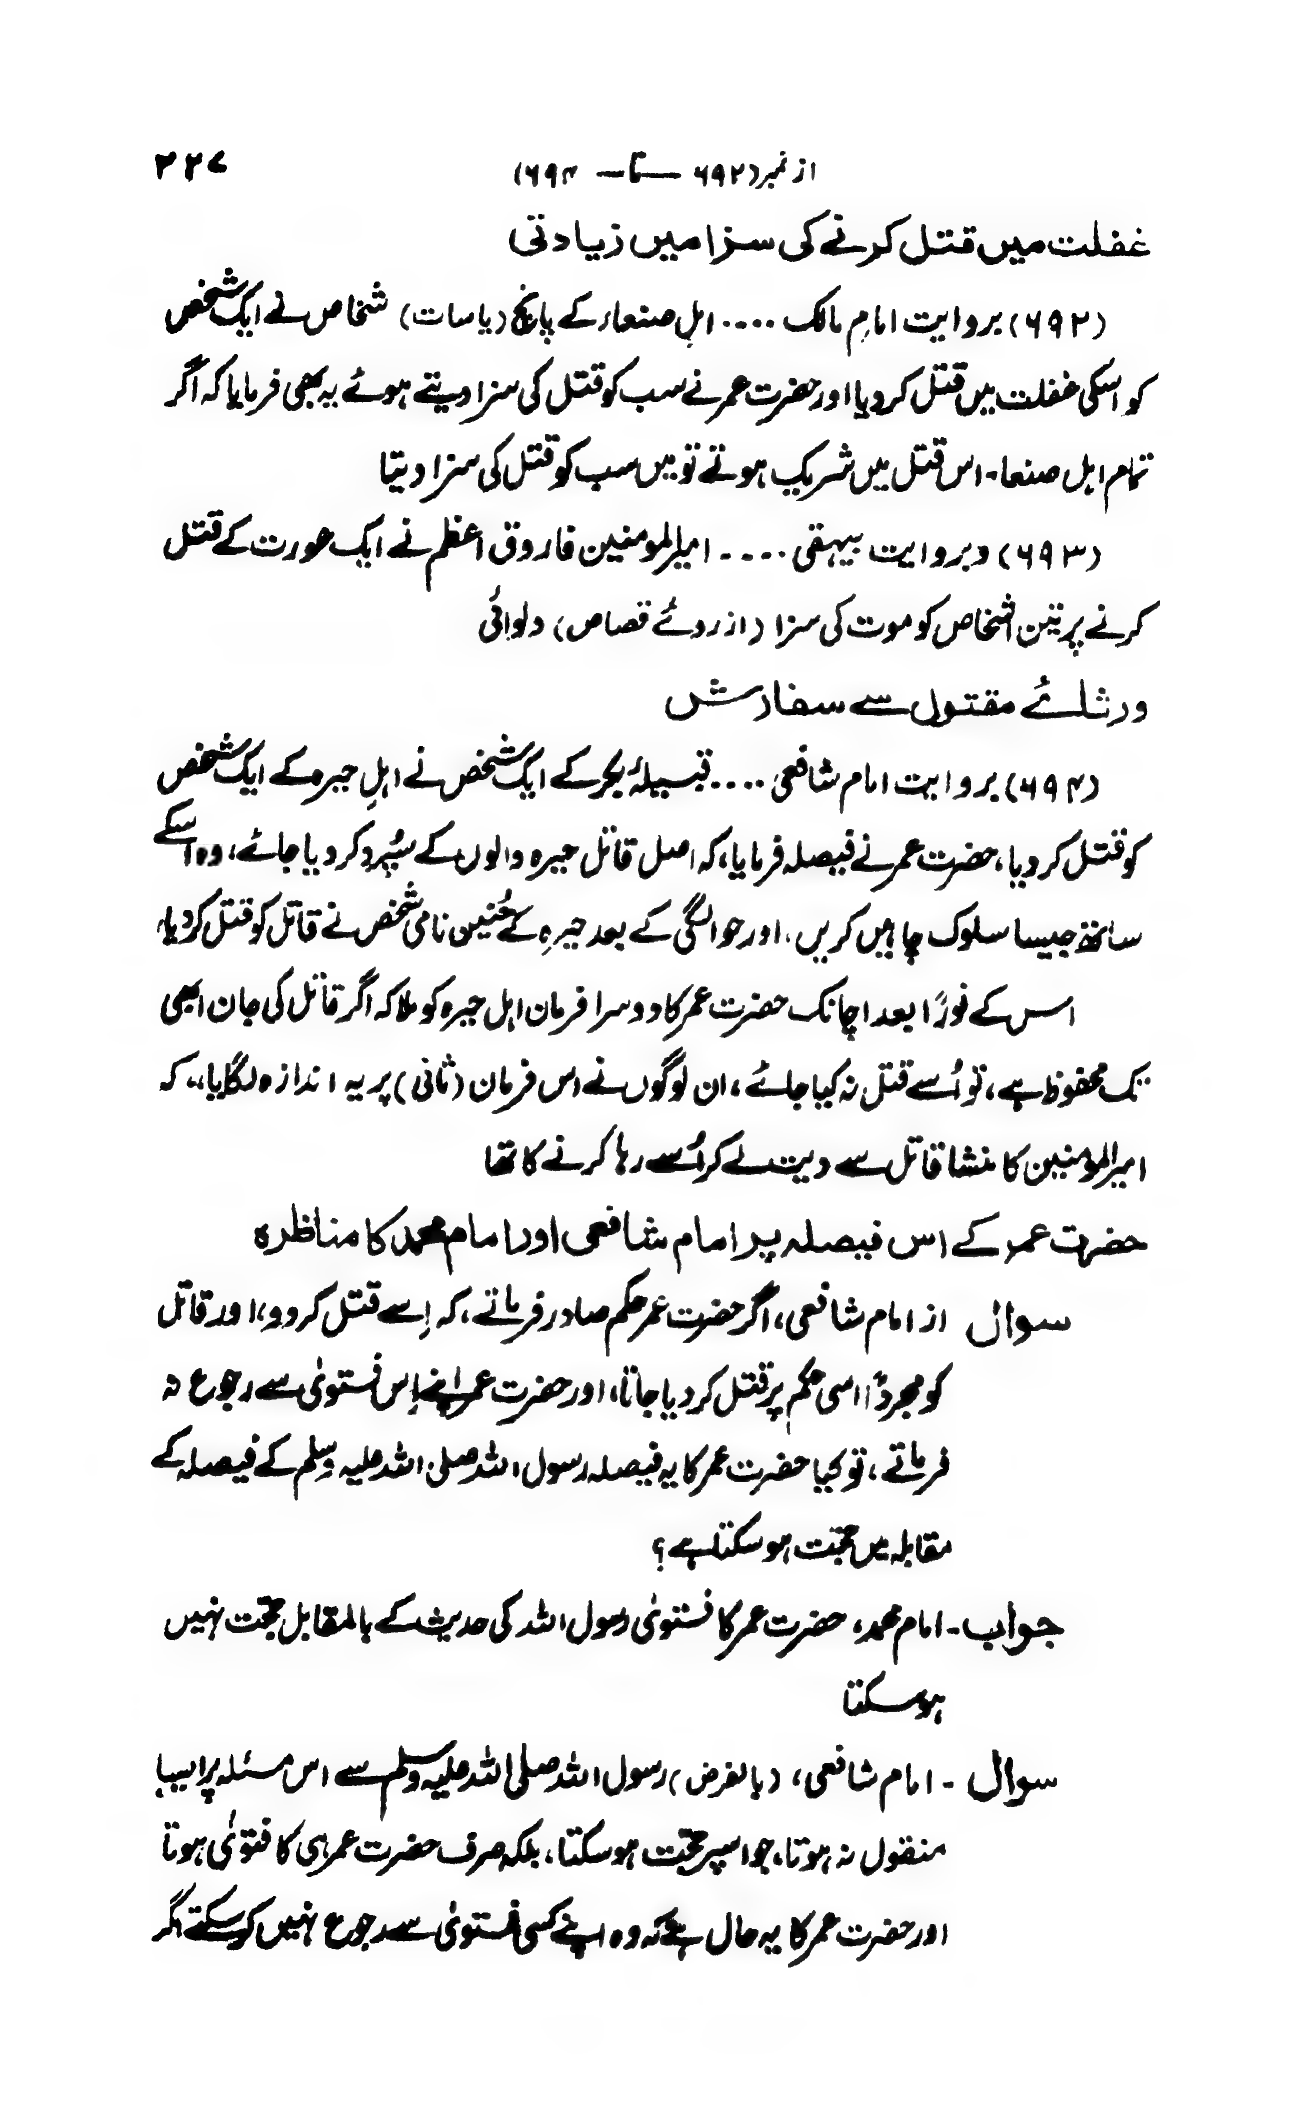 از نمبر (۶۹۲ — تا — ۶۹۴) ۲۲۷
غفلت میں قتل کرنے کی سزا میں زیادتی
(۶۹۲) بروایت امام مالک .... اہلِ صنعاء کے پانچ (یا سات) شخاص نے ایک شخص
کو اسکی غفلت میں قتل کر دیا اور حضرت عمر نے سب کو قتل کی سزا دیتے ہوئے یہ بھی فرمایا کہ اگر
تمام اہل صنعا۔ اس قتل میں شریک ہوتے تو میں سب کو قتل کی سزا دیتا
(۶۹۳) و بروایت بیہقی .... امیر المومنین فاروق اعظم نے ایک عورت کے قتل
کرنے پر تین اشخاص کو موت کی سزا (از روئے قصاص) دلوائی
ورثائے مقتول سے سفارش
(۶۹۴) بروایت امام شافعی .... قبیلۂ بکر کے ایک شخص نے اہلِ حیرہ کے ایک شخص
کو قتل کر دیا، حضرت عمر نے فیصلہ فرمایا، کہ اصل قاتل حیرہ والوں کے سپُرد کر دیا جائے، وہ اسکے
ساتھ جیسا سلوک چاہیں کریں، اور حوالگی کے بعد حیرہ کے حُنین نامی شخص نے قاتل کو قتل کر دیا،
اس کے فورًا بعد اچانک حضرت عمر کا دوسرا فرمان اہل حیرہ کو ملا کہ اگر قاتل کی جان ابھی
تک محفوظ ہے، تو اُسے قتل نہ کیا جائے، ان لوگوں نے اس فرمان (ثانی) پر یہ اندازہ لگایا،، کہ
امیر المومنین کا منشا قاتل سے دیت لے کر اُسے رہا کرنے کا تھا
حضرت عمر کے اس فیصلہ پر امام شافعی اور امام محمد کا مناظرہ
سوال از امام شافعی، اگر حضرت عمر حکم صادر فرماتے، کہ اِسے قتل کر دو، اور قاتل
کو مجردًا اسی حکم پر قتل کر دیا جاتا، اور حضرت عمر اپنے اِس فتویٰ سے رجوع نہ
فرماتے، تو کیا حضرت عمر کا یہ فیصلہ رسول اللہ صلی اللہ علیہ وسلم کے فیصلہ کے
مقابلہ میں حجّت ہو سکتا ہے؟
جواب۔ امام محمد، حضرت عمر کا فتویٰ رسول اللہ کی حدیث کے بالمقابل حجّت نہیں
ہو سکتا
سوال ۔ امام شافعی، (بالفرض) رسول اللہ صلی اللہ علیہ وسلم سے اس مسئلہ پر ایسا
منقول نہ ہوتا، جو اسپر حجّت ہو سکتا، بلکہ صرف حضرت عمر ہی کا فتویٰ ہوتا
اور حضرت عمر کا یہ حال ہے کہ وہ اپنے کسی فتویٰ سے رجوع نہیں کر سکتے مگر